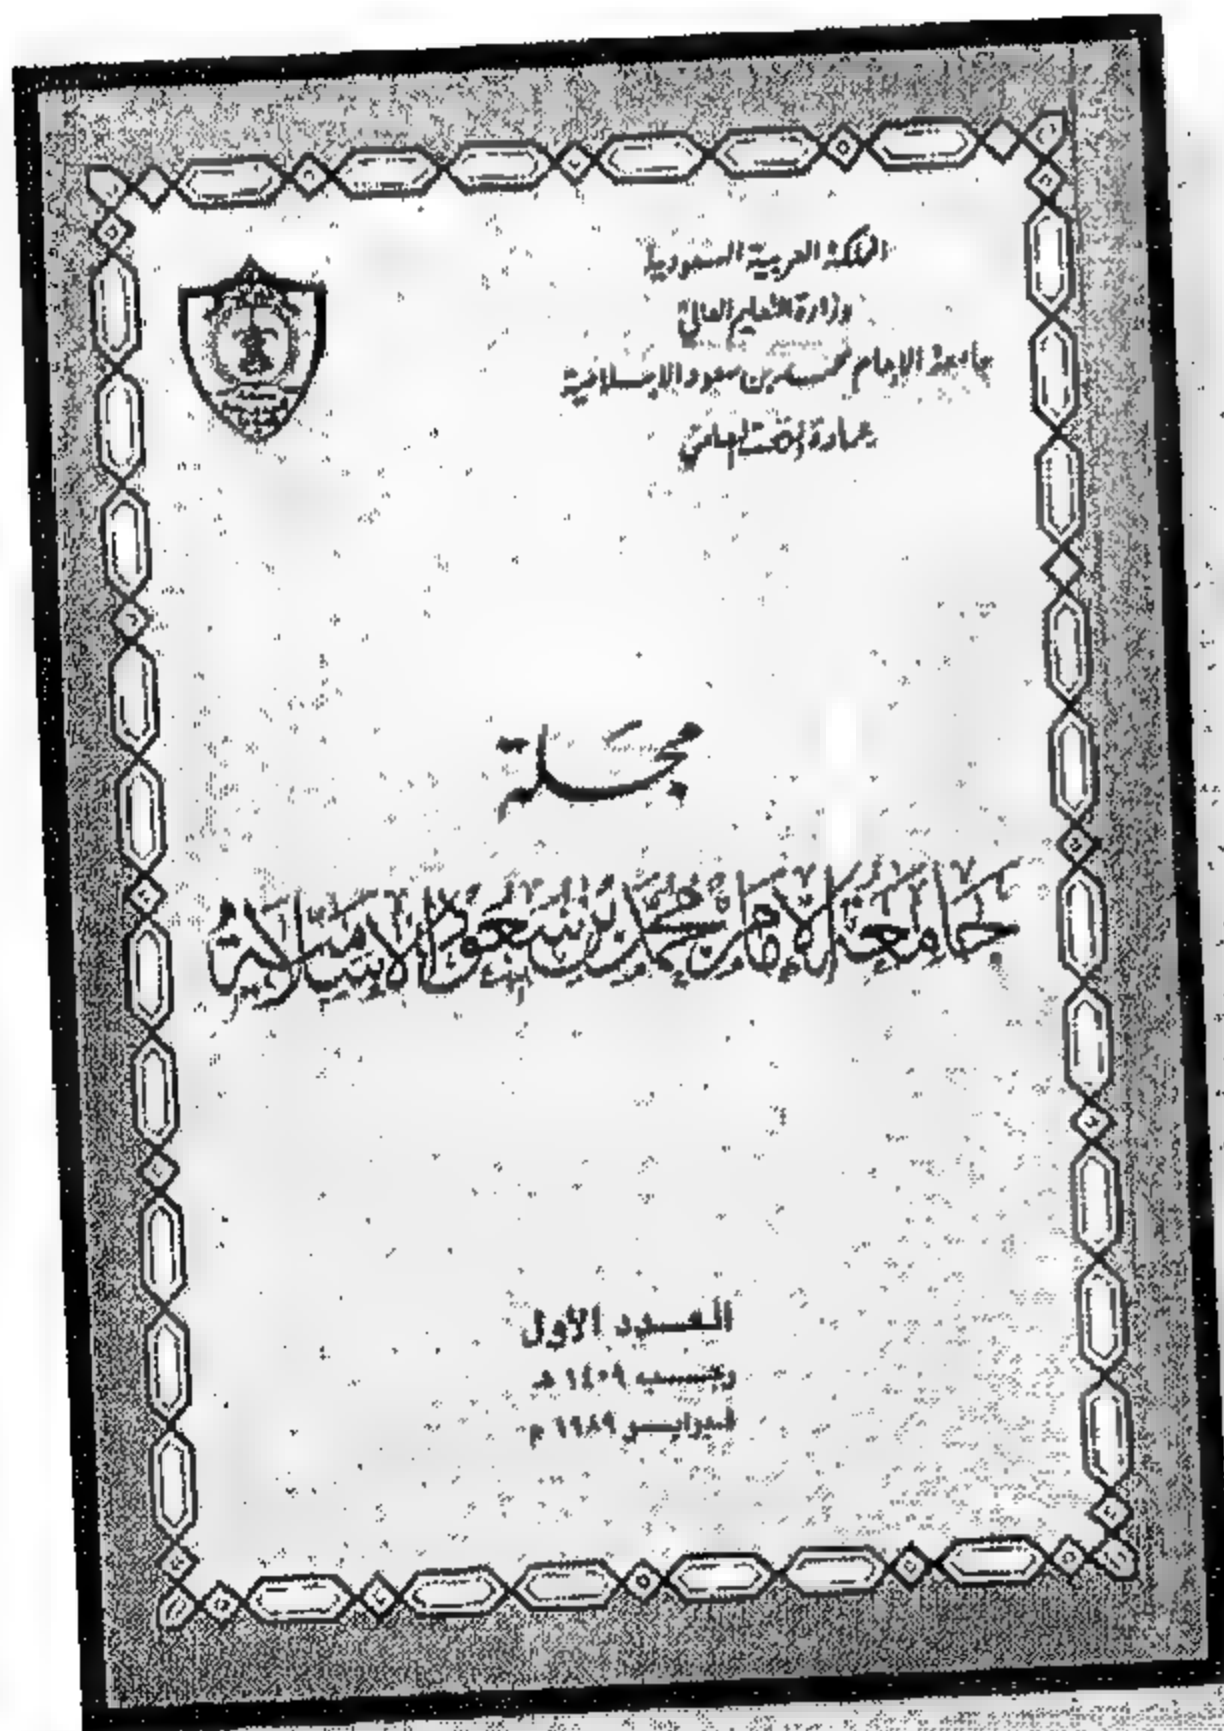 المملكة العربية السعودية
وزارة التعليم العالي
جامعة الإمام محمد بن سعود الإسلامية
عمادة البحث العلمي
مجلة
جامعة الإمام محمد بن سعود الإسلامية
العدد الأول
رجب ١٤٠٩ هـ
فبراير ١٩٨٩ م